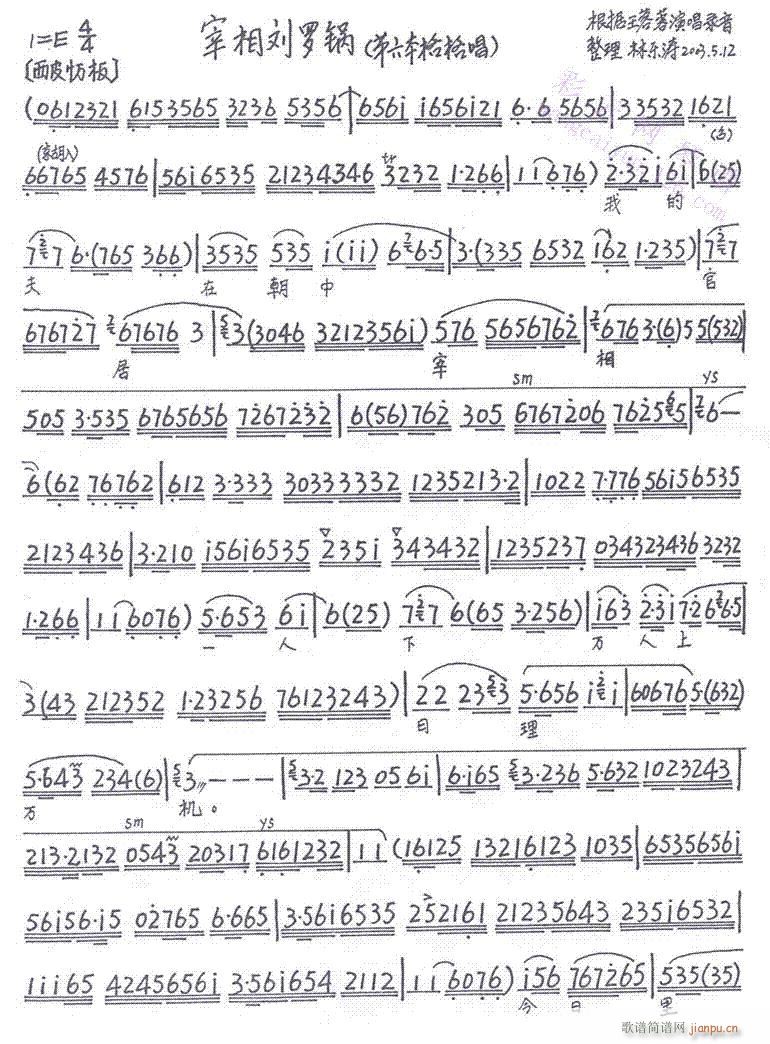 1=E 4/4
宰相刘罗锅(第六本格格唱)
根据王蓉蓉演唱录音
整理 林乐涛 2003.5.12
[西皮慢板]
(0612321 6153565 3236 5356|656i i656i21 6·6 5656|33533 1621
667765 4576|56i6535 21234346 3232 1·266|1i676) 2·32i 6i|6(25)
我 的
7 7 6·(765 366)|3535 535 i(ii) 6 6·5|3·(335 6532 i62 1·235)|7 7
夫 在 朝 中 官
676727 67676 3|3(3046 3212356i) 576 5656762|6763·(6)55(532)
居 宰 相
sm ys
505 3·535 6765656 7267232|6(56)762 305 6767206 7625 5|6—
6(62 76762|612 3·333 30333332 1235213·2|1022 7·776 56i56535
2123436|3·210 i56i6535 235i 343432|1235237 034323436 3232
1·266|1i6076) 5·653 6i|6(25) 7 7 6(65 3·256)|i63 2·3i7·26 6·5
一 人 下 万 人 上
3(43 212352 1·23256 76123243)|22 23 3 5·656 i i|60676 5·(632)
日 理
5·643 234(6)|3 — — —|3·2 123 056i|6·i65 3·236 5·632 1023243|
万 机。
sm ys
213·2132 0543 20317 6161232|1i(16125 13216123 1035|6535656i
56i56·i5 02765 6·665|3·56i6535 252161 21235643 235i6532|
1ii65 4245656i 3·56i654 2112|1i6076) i56 767265|535(35)
今 日 里
歌谱简谱网
jianpu.cn